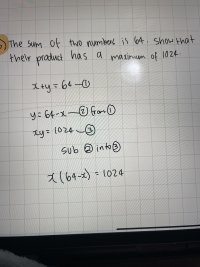 The sum of two numbers is 64. Show that
their product has a maximum of 1024
x+y = 64 —①
y = 64-x —② from ①
xy = 1024 —③
sub ② into ③
x(64-x) = 1024